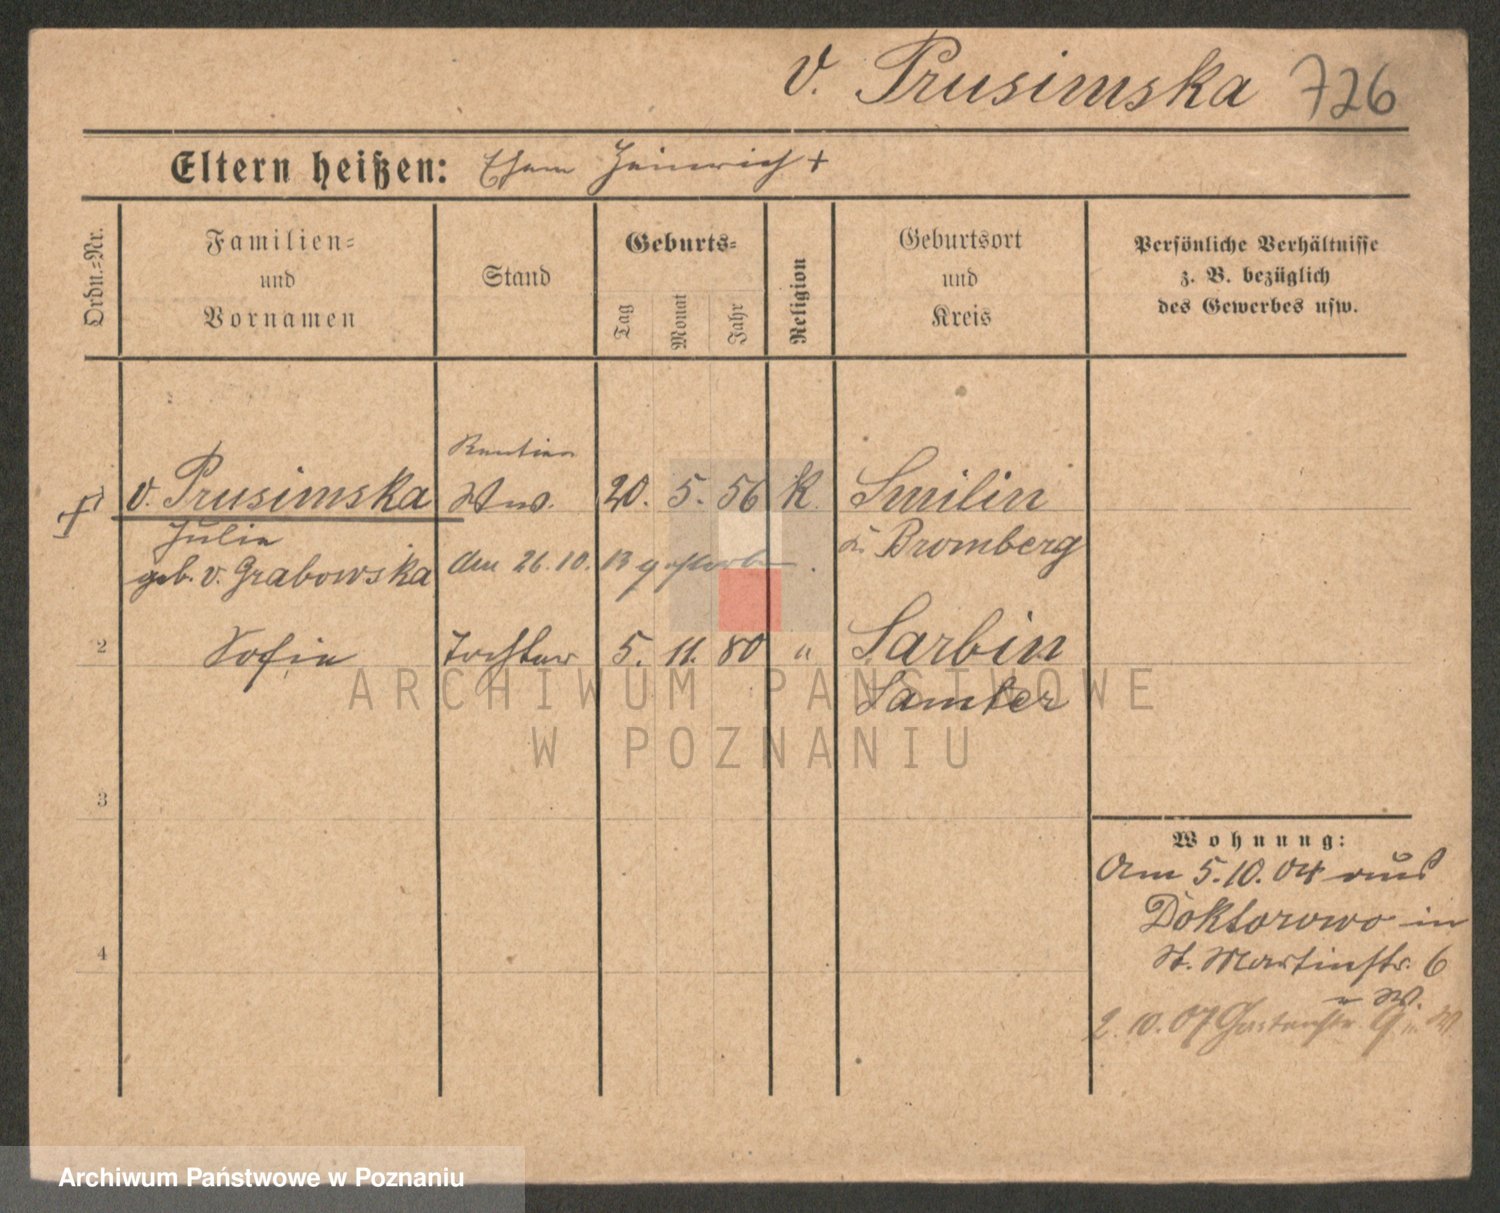 v. Prusimska 726
Eltern heißen: Ehem Heinrich +
Ordn.=Nr.
Familien=
und
Vornamen
Stand
Geburts=
Tag
Monat
Jahr
Religion
Geburtsort
und
Kreis
Persönliche Verhältnisse
z. B. bezüglich
des Gewerbes usw.
Rentiere
v. Prusimska Ww. 20. 5. 56 K. Smilin
Julie
Bromberg
geb. v. Grabowska den 26.10.13 gestorben.
2 Sofie Tochter 5. 11. 80 " Sarbin
Samter
3
4
Wohnung:
Am 5.10.04 aus
Doktorowo in
St. Martinstr. 6
v W.
2.10.07 9 W
ARCHIWUM PAŃSTWOWE
W POZNANIU
Archiwum Państwowe w Poznaniu